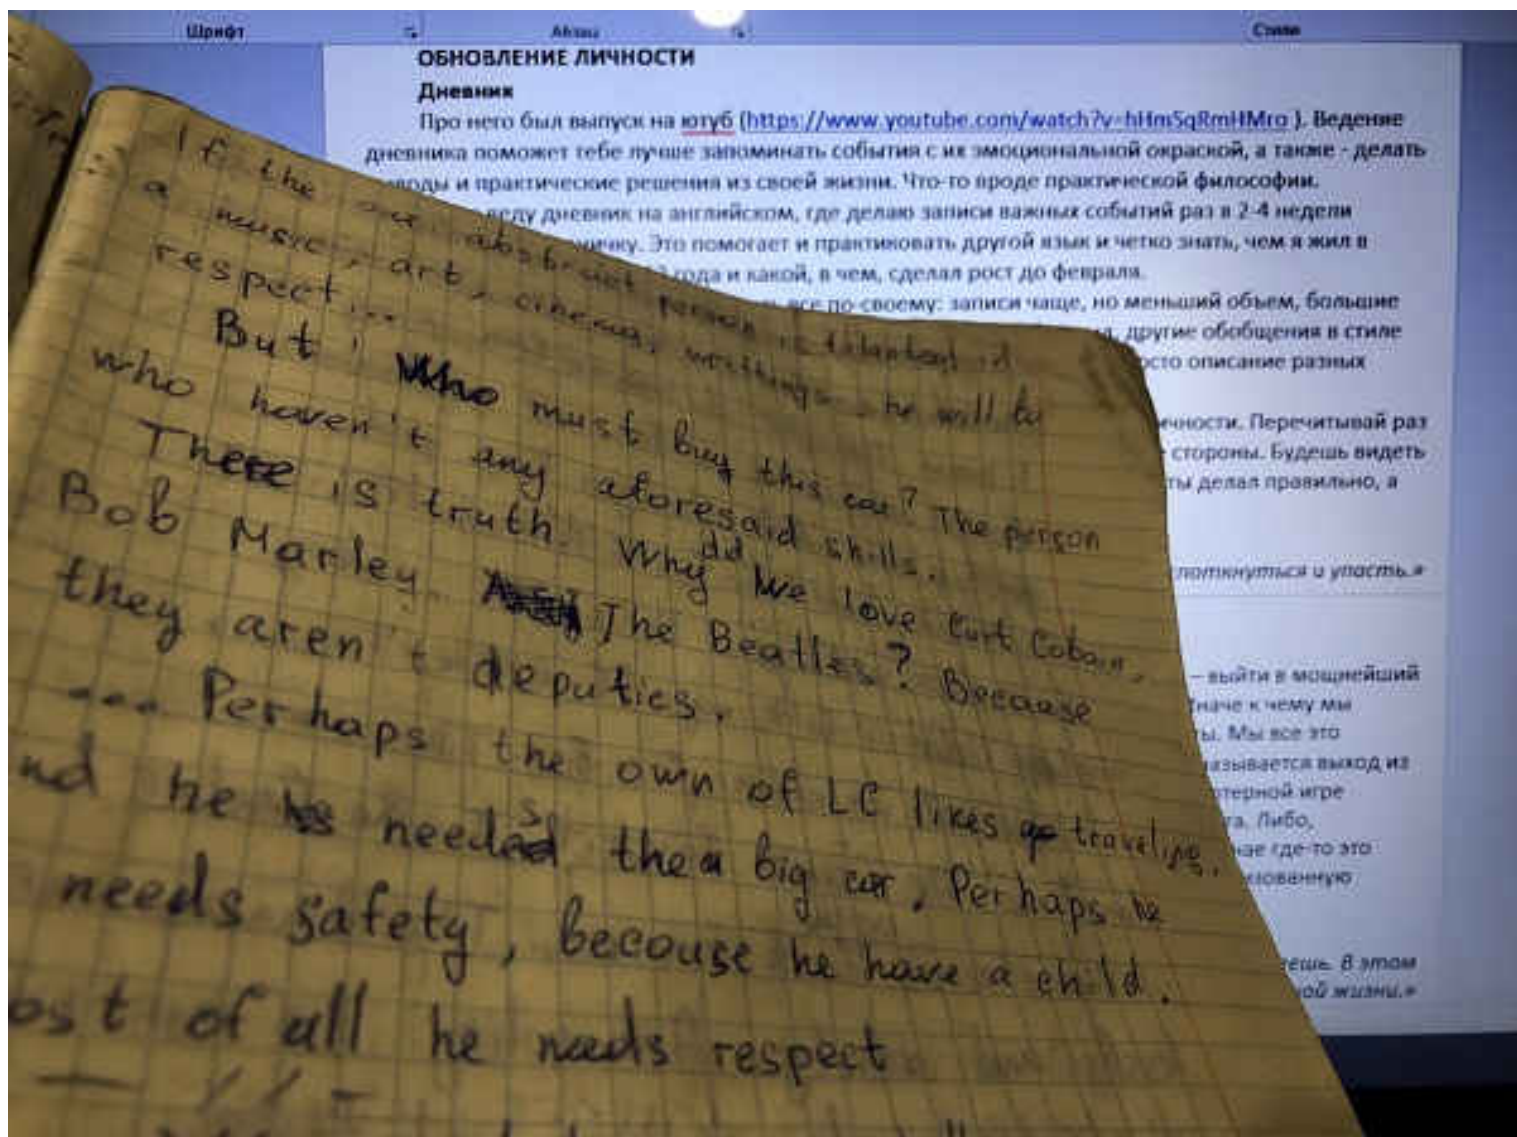 Шрифт Абзац Стили
ОБНОВЛЕНИЕ ЛИЧНОСТИ
Дневник
Про него был выпуск на ютуб (https://www.youtube.com/watch?v=hHmSqRmHMro ). Ведение
дневника поможет тебе лучше запоминать события с их эмоциональной окраской, а также - делать
и практические решения из своей жизни. Что-то вроде практической философии.
веду дневник на английском, где делаю записи важных событий раз в 2-4 недели
Это помогает и практиковать другой язык и четко знать, чем я жил в
года и какой, в чем, сделал рост до февраля.
все по-своему: записи чаще, но меньший объем, большие
другие обобщения в стиле
описание разных
Перечитывай раз
стороны. Будешь видеть
ты делал правильно, а
споткнуться и упасть.»
– выйти в мощнейший
к чему мы
Мы все это
выход из
игре
Либо,
где-то это
В этом
жизни.»
If the one abstract person is talanted in
a music, art, cinema, writings he will be
respect...
But! Who must buy this car? The person
who haven't any aforesaid skills.
There is truth. Why did we love Curt Cobain,
Bob Marley, The Beatles? Because
they aren't deputies.
... Perhaps the own of LC likes traveling,
he needs the a big car. Perhaps he
needs safety, becouse he have a child.
of all he needs respect